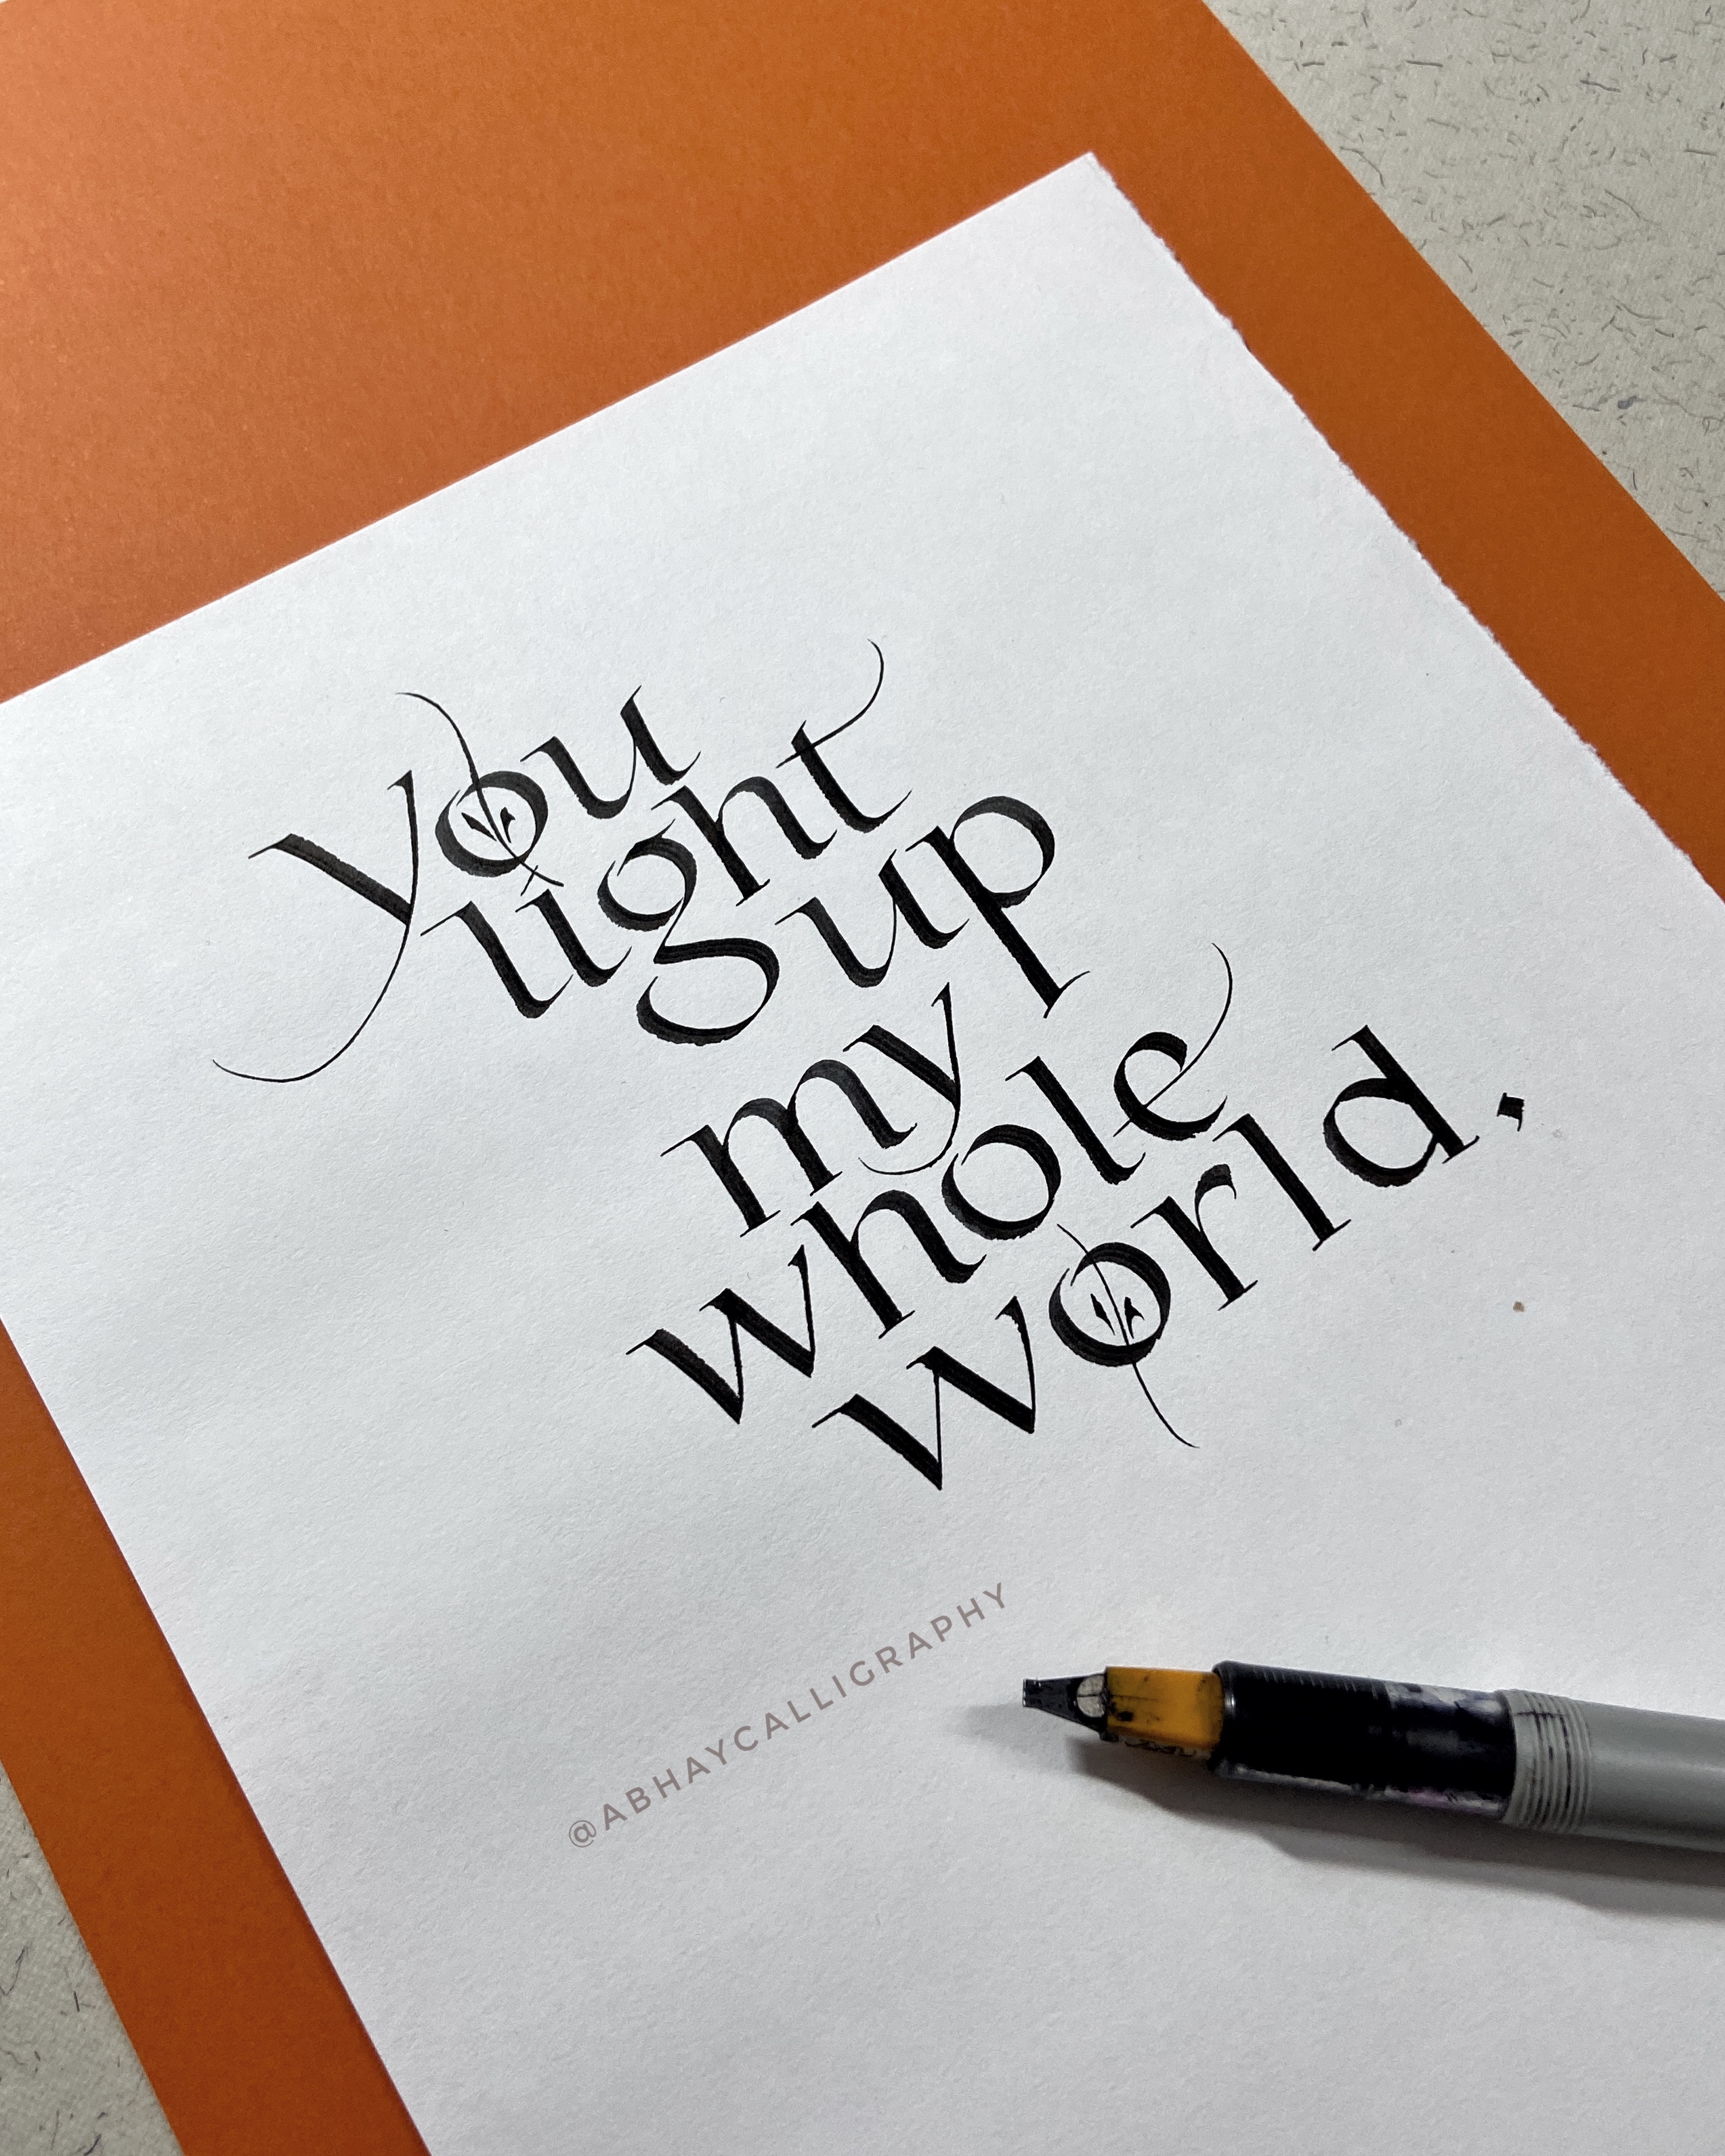 you
light
up
my
whole
world.
@ABHAYCALLIGRAPHY